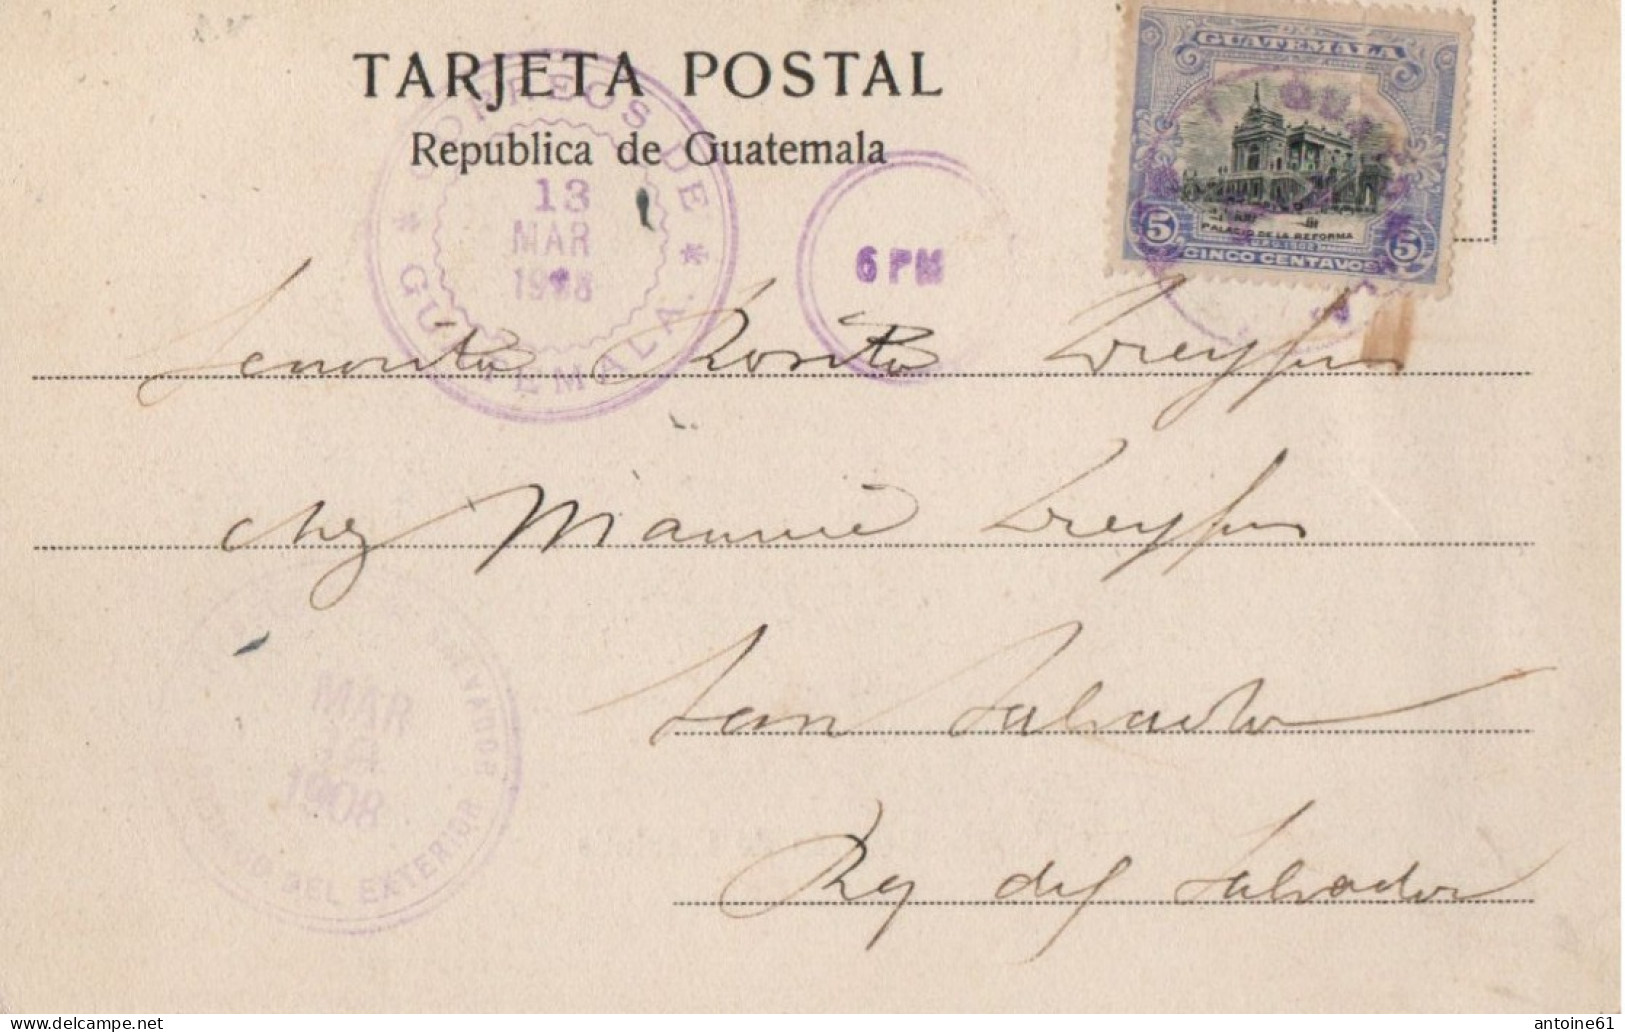 TARJETA POSTAL
Republica de Guatemala
CORREOS DE
13
MAR
1908
GUATEMALA
6 PM
GUATEMALA
PALACIO DE LA REFORMA
U.P.U. 1902
5 5
CINCO CENTAVOS
Senorita Rosita Dreyfus
chez Maurice Dreyfus
San Salvador
Rep del Salvador
SALVADOR
MAR
1908
DEL EXTERIOR
antoine61